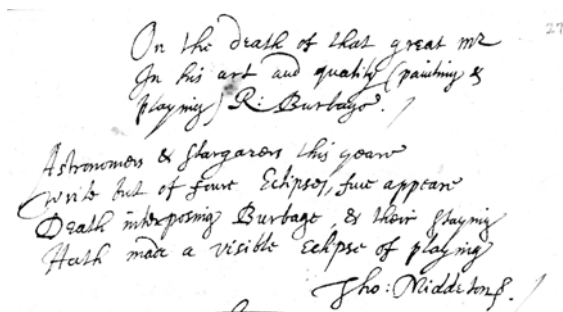 27
On the death of that great mr
In his art and quality (painting &
playing) R: Burbage. /
Astronomers & Stargazers this yeare
write but of foure Eclipses, fiue appeare
Death interposing Burbage, & their staying
Hath made a visible Eclipse of playing
Tho: Middleton. /